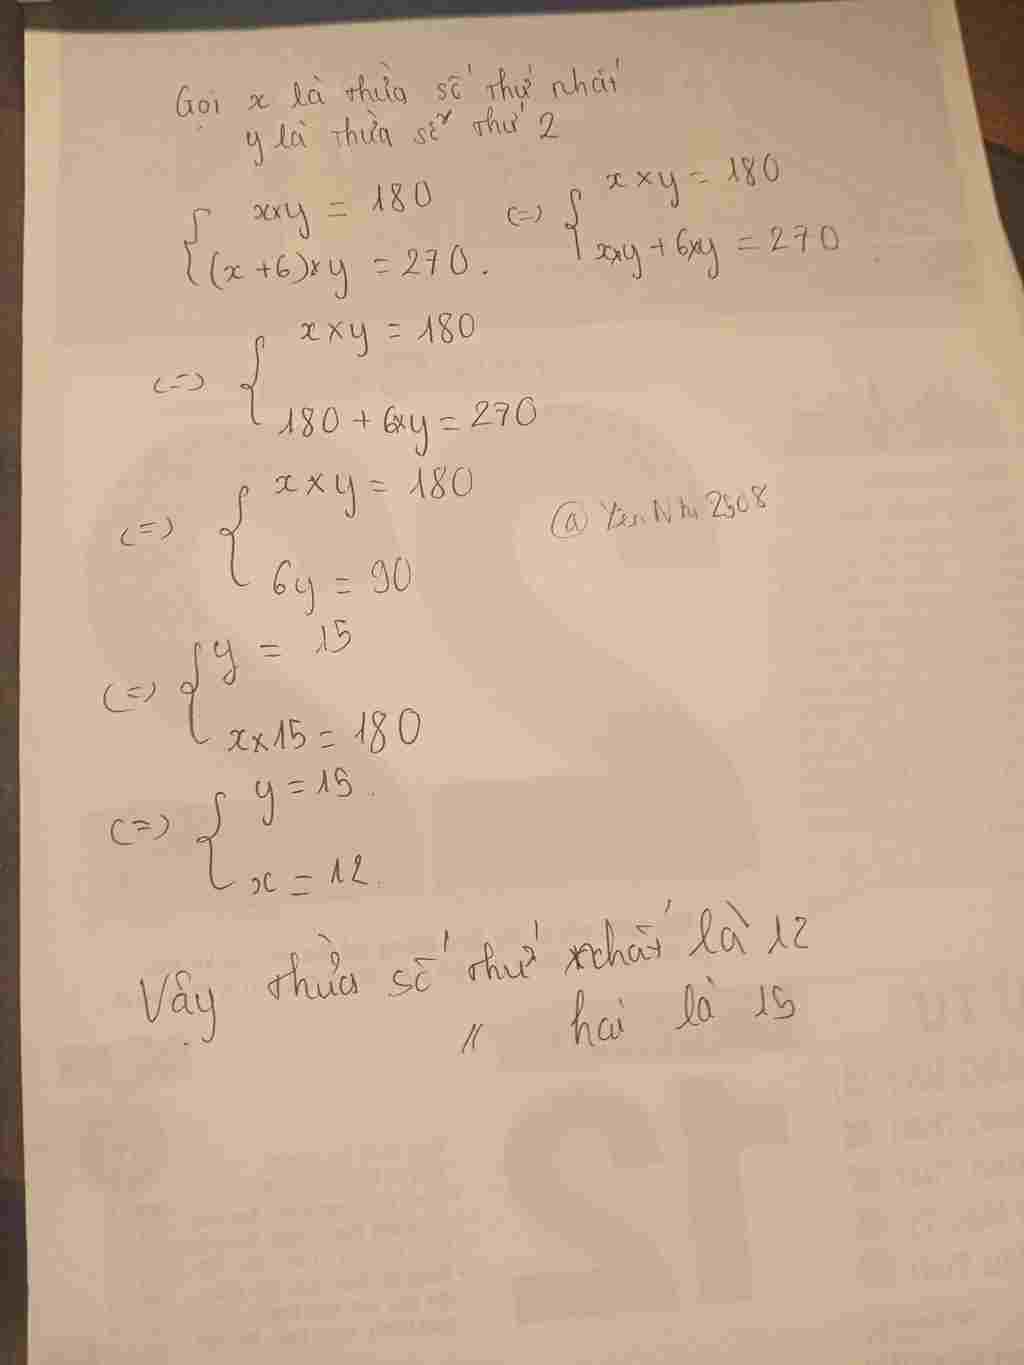 Gọi x là thừa số thứ nhất
y là thừa số thứ 2
x×y = 180 (=) x×y = 180
(x+6)×y = 270. x×y + 6×y = 270
(=) x×y = 180
180 + 6×y = 270
(=) x×y = 180
@ Yến Như 2508
6y = 90
(=) y = 15
x×15 = 180
(=) y = 15.
x = 12.
Vậy thừa số thứ nhất là 12
" hai là 15
12